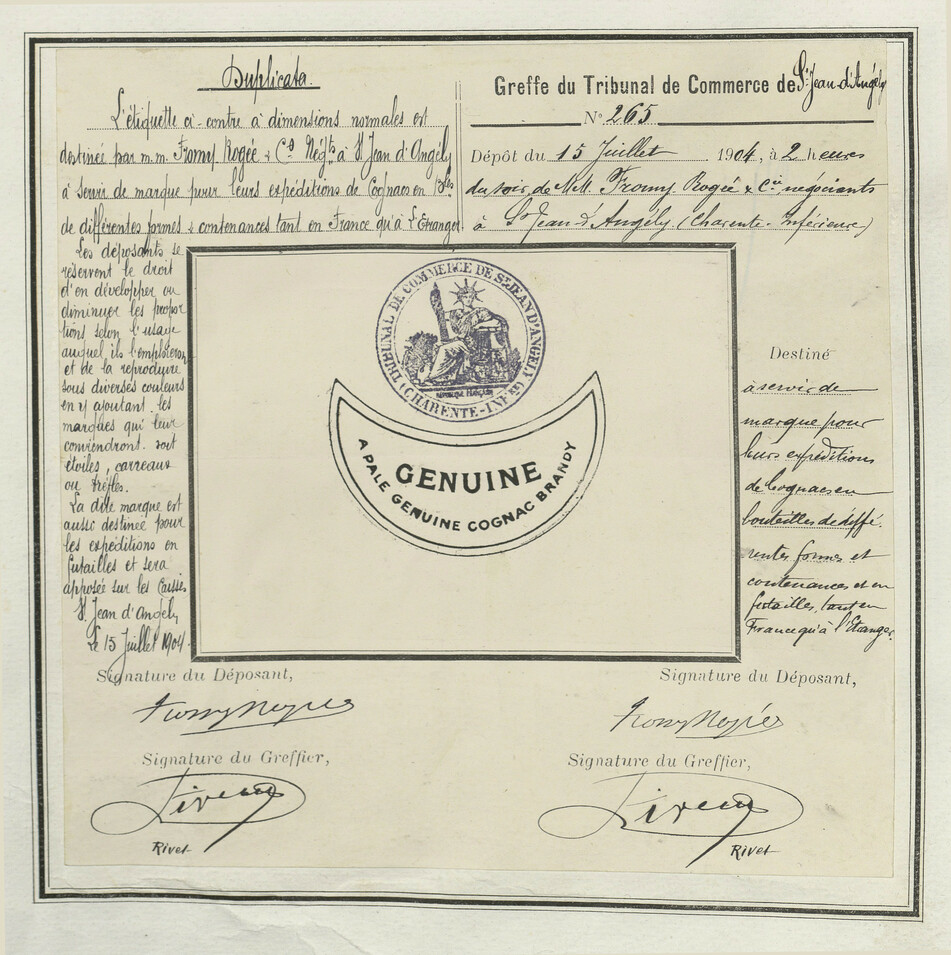 Duplicata.
L'étiquette ci-contre à dimensions normales est
destinée par m.m. Fromy, Rogée & Cie Négts à St Jean d'Angély
à servir de marque pour leurs expéditions de Cognacs en Blles
de différentes formes & contenances tant en France qu'à l'Etranger.
Les déposants se
réservent le droit
d'en développer ou
diminuer les propor
tions selon l'usage
auquel ils l'emploieront
et de la reproduire
sous diverses couleurs
en y ajoutant les
marques qui leur
conviendront soit
étoiles, carreaux
ou trèfles.
La dite marque est
aussi destinée pour
les expéditions en
futailles et sera
apposée sur les Caisses
St Jean d'Angély
Le 15 Juillet 1904
Greffe du Tribunal de Commerce de St Jean d'Angély
No 265
Dépôt du 15 Juillet 1904, à 2 heures
du soir, de M.M. Fromy, Rogée & Cie négociants
à St Jean d'Angély (Charente-Inférieure)
TRIBUNAL DE COMMERCE DE ST JEAN D'ANGELY
(CHARENTE-INFRE)
REPUBLIQUE FRANÇAISE
GENUINE
A PALE GENUINE COGNAC BRANDY
Destiné
à servir de
marque pour
leurs expéditions
de Cognacs en
bouteilles de diffé
rentes formes et
contenances et en
futailles, tant en
France qu'à l'Etranger.
Signature du Déposant,
Fromy Rogée
Signature du Greffier,
Rivet
Signature du Déposant,
Fromy Rogée
Signature du Greffier,
Rivet